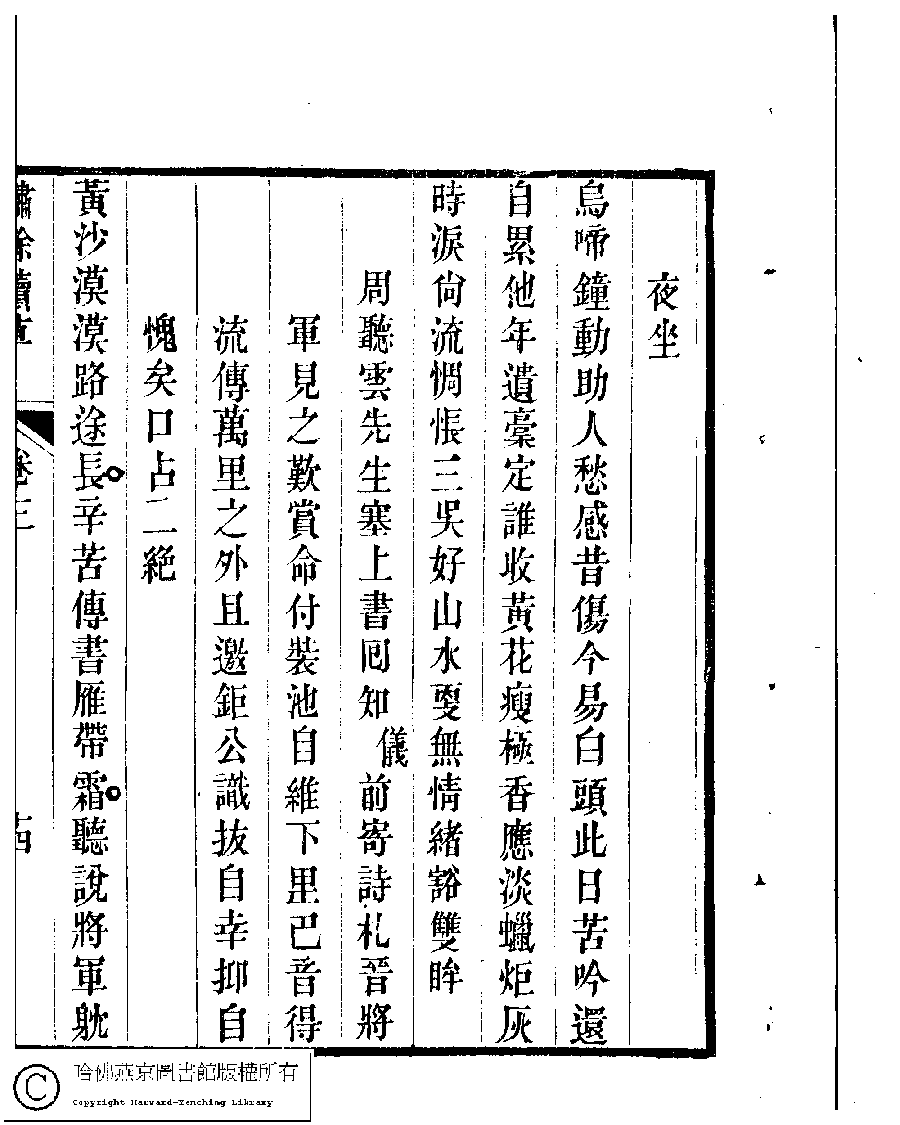 夜坐
烏啼鐘動助人愁感昔傷今易白頭此日苦吟還
自累他年遺稾定誰收黃花瘦極香應淡蠟炬灰
時淚尙流惆悵三吳好山水更無情緒豁雙眸
周聽雲先生塞上書囘知儀前寄詩札晉將
軍見之歎賞命付裝池自維下里巴音得
流傳萬里之外且邀鉅公識拔自幸抑自
愧矣口占二絕
黃沙漠漠路途長辛苦傳書雁帶霜聽說將軍躭
繡餘續草
卷三
十四
哈佛燕京圖書館版權所有
Copyright Harvard-Yenching Library